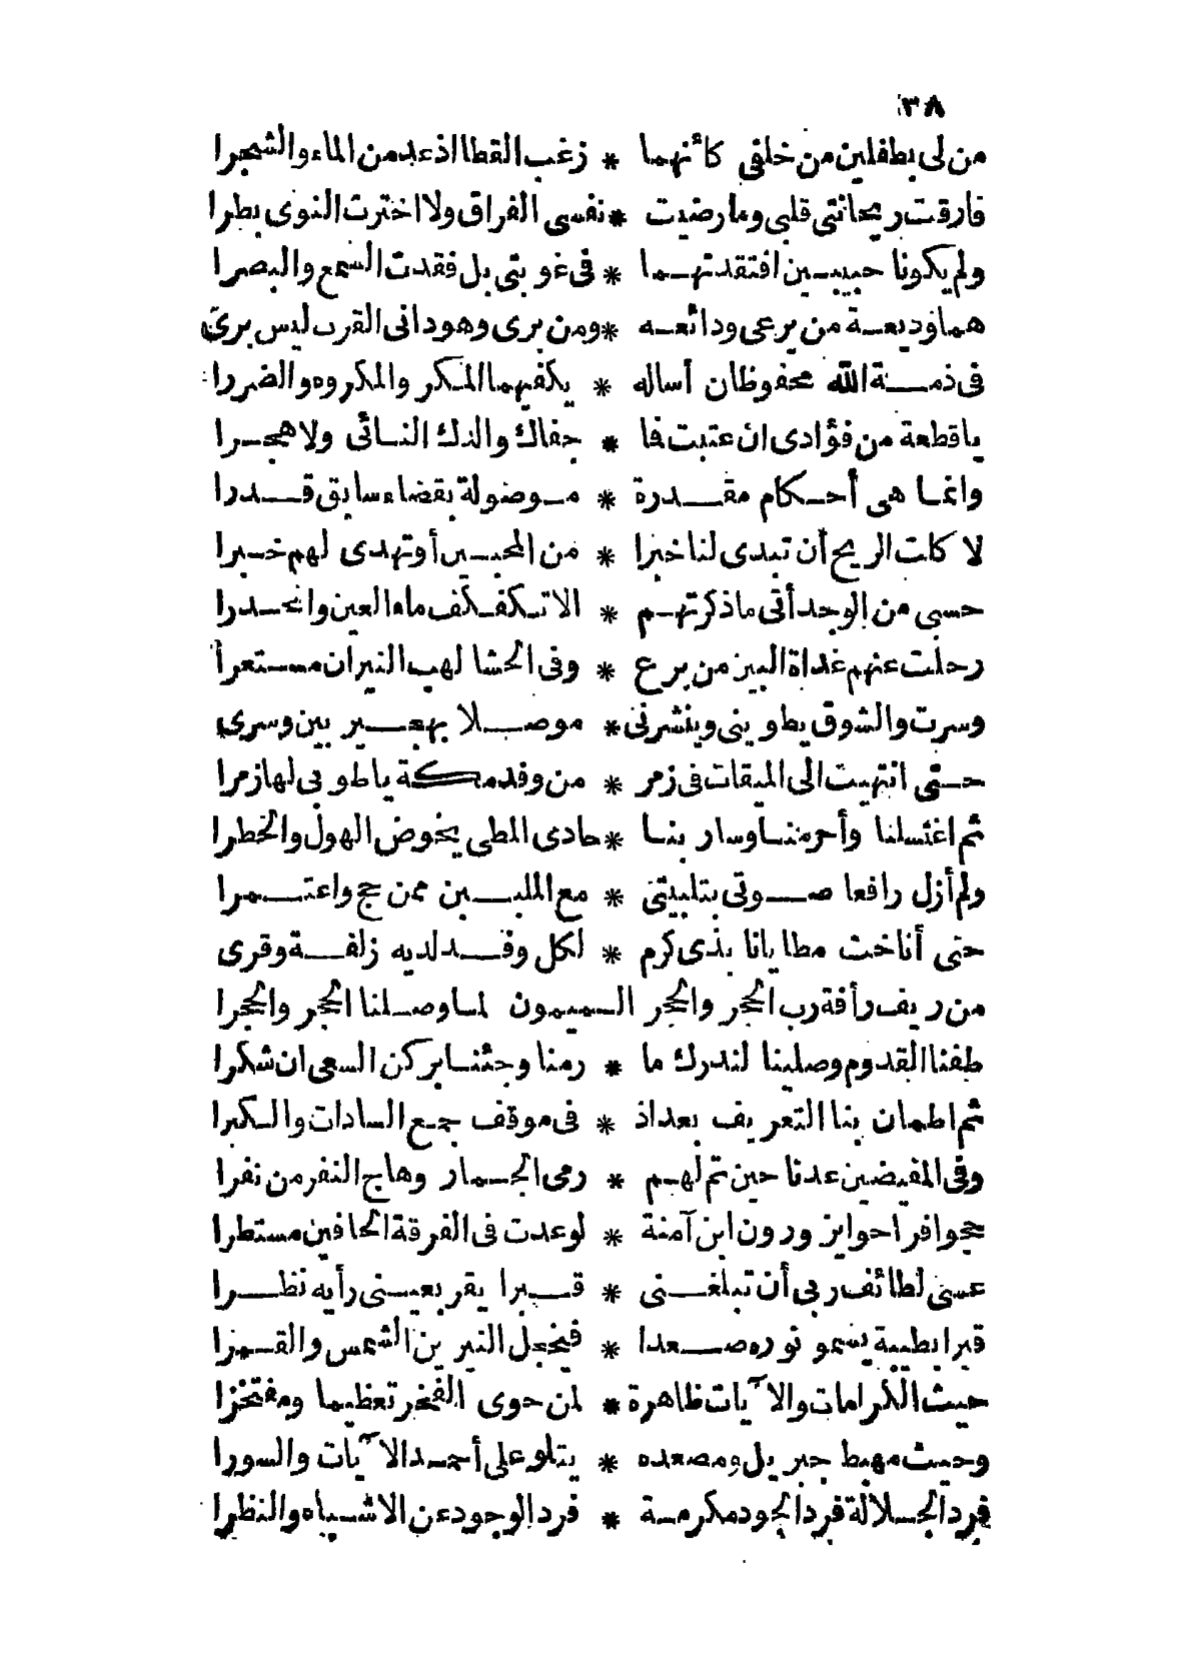 ٣٨
من لى بطفلين من خلفى كأنهما * زغب القطا اذ عدمن الماء والشجرا
فارقت ريحانتى قلبى وما رضيت * نفسى الفراق ولا اخترت النوى بطرا
ولم يكونا حبيبين افتقدتهما * فى غربتى بل فقدت السمع والبصرا
هما وديعة من يرعى ودائعه * ومن يرى وهو دانى القرب ليس يرى
فى ذمة الله محفوظان أساله * يكفيهما المنكر والمكروه والضررا
ياقطعة من فؤادى ان عتبت فما * جفاك والدك النائى ولا هجرا
وانما هى أحكام مقدرة * موصولة بقضاء سابق قدرا
لا كانت الريح أن تبدى لنا خبرا * من المحبين أو تهدى لهم خبرا
حسبى من الوجد أنى ما ذكرتهم * الا تكفكف ماء العين وانحدرا
رحلت عنهم غداة البين من برع * وفى الحشا لهب النيران مستعرا
وسرت والشوق يطوينى وينشرنى * موصلا بهجير بين وسرى
حتى انتهيت الى الميقات فى زمر * من وفد مكة ياطوبى لها زمرا
ثم اغتسلنا وأحرمنا وسار بنا * حادى المطى يخوض الهول والخطرا
ولم أزل رافعا صوتى بتلبيتى * مع الملبين ممن حج واعتمرا
حتى أناخت مطايانا بذى كرم * لكل وفد لديه زلفة وقرى
من ريف رأفة رب الحجر والحجر الميمون لما وصلنا الحجر والحجرا
طفنا القدوم وصلينا لندرك ما * رمنا وجئنا بركن السعى ان شكرا
ثم اطمان بنا التعريف بعد اذ * فى موقف جمع السادات والكبرا
وفى المفيضين عدنا حين تم لهم * رمى الجمار وهاج النفر من نفرا
حجوا فراحوا يزورون ابن آمنة * لوعدت فى الفرقة الحافين مستطرا
عسى لطائف ربى أن تبلغنى * قبرا يقر بعينى رأيه نظرا
قبرا بطيبة يسمو نوره صعدا * فيخجل النيرين الشمس والقمرا
حيث الكرامات والآيات ظاهرة * لمن حوى الفخر تعظيما ومفتخرا
وحيث مهبط جبريل ومصعده * يتلو على أحمد الآيات والسورا
فرد الجلالة فرد الجود مكرمة * فرد الوجود عن الاشباه والنظرا